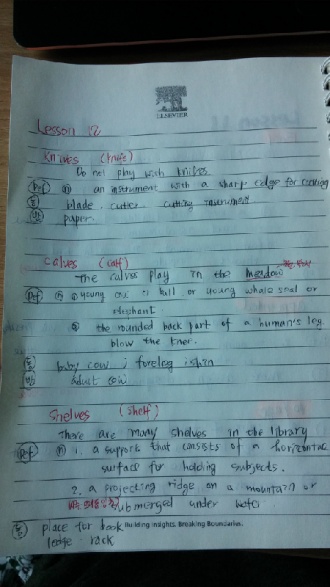 ELSEVIER
Lesson 12
Knives (knife)
Do not play with knives
(Def) (n) an instrument with a sharp edge for cutting
(동) blade, cutter, cutting instrument
(반) paper.
Calves (calf)
The calves play in the meadow
(Def) (n) a young cow or bull or young whale seal or
elephant
the rounded back part of a human's leg
blow the knee.
(동) baby cow ; foreleg ; shin
(반) adult cow
Shelves (shelf)
There are many shelves in the library
(Def) (n) 1. a support that consists of a horizontal
surface for holding subjects.
2. a projecting ridge on a mountain or
submerged under water
(동) place for book
Building Insights. Breaking Boundaries.
ledge rack